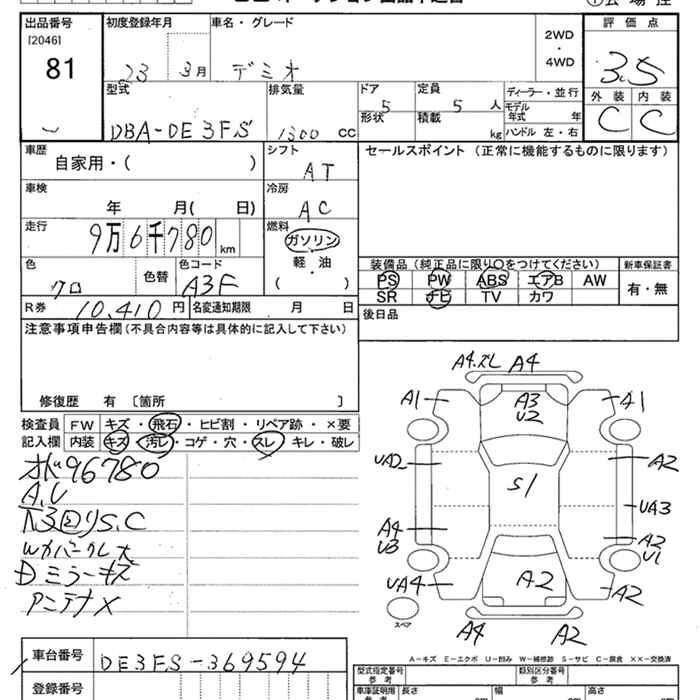 出品番号
[2046]
81
初度登録年月
23 3月
車名・グレード
デミオ
2WD
・
4WD
評価点
3.5
型式
DBA-DE3FS
排気量
1300 CC
ドア
5
形状
定員
5 人
積載
kg
ディーラー・並行
モデル年式 年
ハンドル 左・右
外装 内装
C C
車歴
自家用・( )
シフト
AT
セールスポイント (正常に機能するものに限ります)
車検
年 月( 日)
冷房
AC
走行
9万6千780 km
燃料
ガソリン
軽・油
( )
色
クロ
色替
色コード
A3F
装備品 (純正品に限り○をつけてください)
PS PW ABS エアB AW
SR ナビ TV カワ
新車保証書
有・無
R券
10,410円
名変通知期限 月 日
後日品
注意事項申告欄 (不具合内容等は具体的に記入して下さい)
修復歴 有 〔箇所 〕
検査員
記入欄
FW キズ・飛石・ヒビ割・リペア跡・×要
内装 キズ・汚レ・コゲ・穴・スレ・キレ・破レ
96780
A.U
S.C
Wカバークレ大
Dミラーキズ
アンテナX
A4.ズレ A4
A1
A3
U2
A1
UA2
A2
S1
UA3
A4
U3
A2
U1
UA4
A2
A2
スペア
A4
A2
A-キズ E-エクボ U-凹み W-補修跡 S-サビ C-腐食 ××-交換済
車台番号
DE3FS-369594
登録番号
型式指定番号
参考
類別区分番号
参考
車庫証明用
参考
長さ
幅
高さ